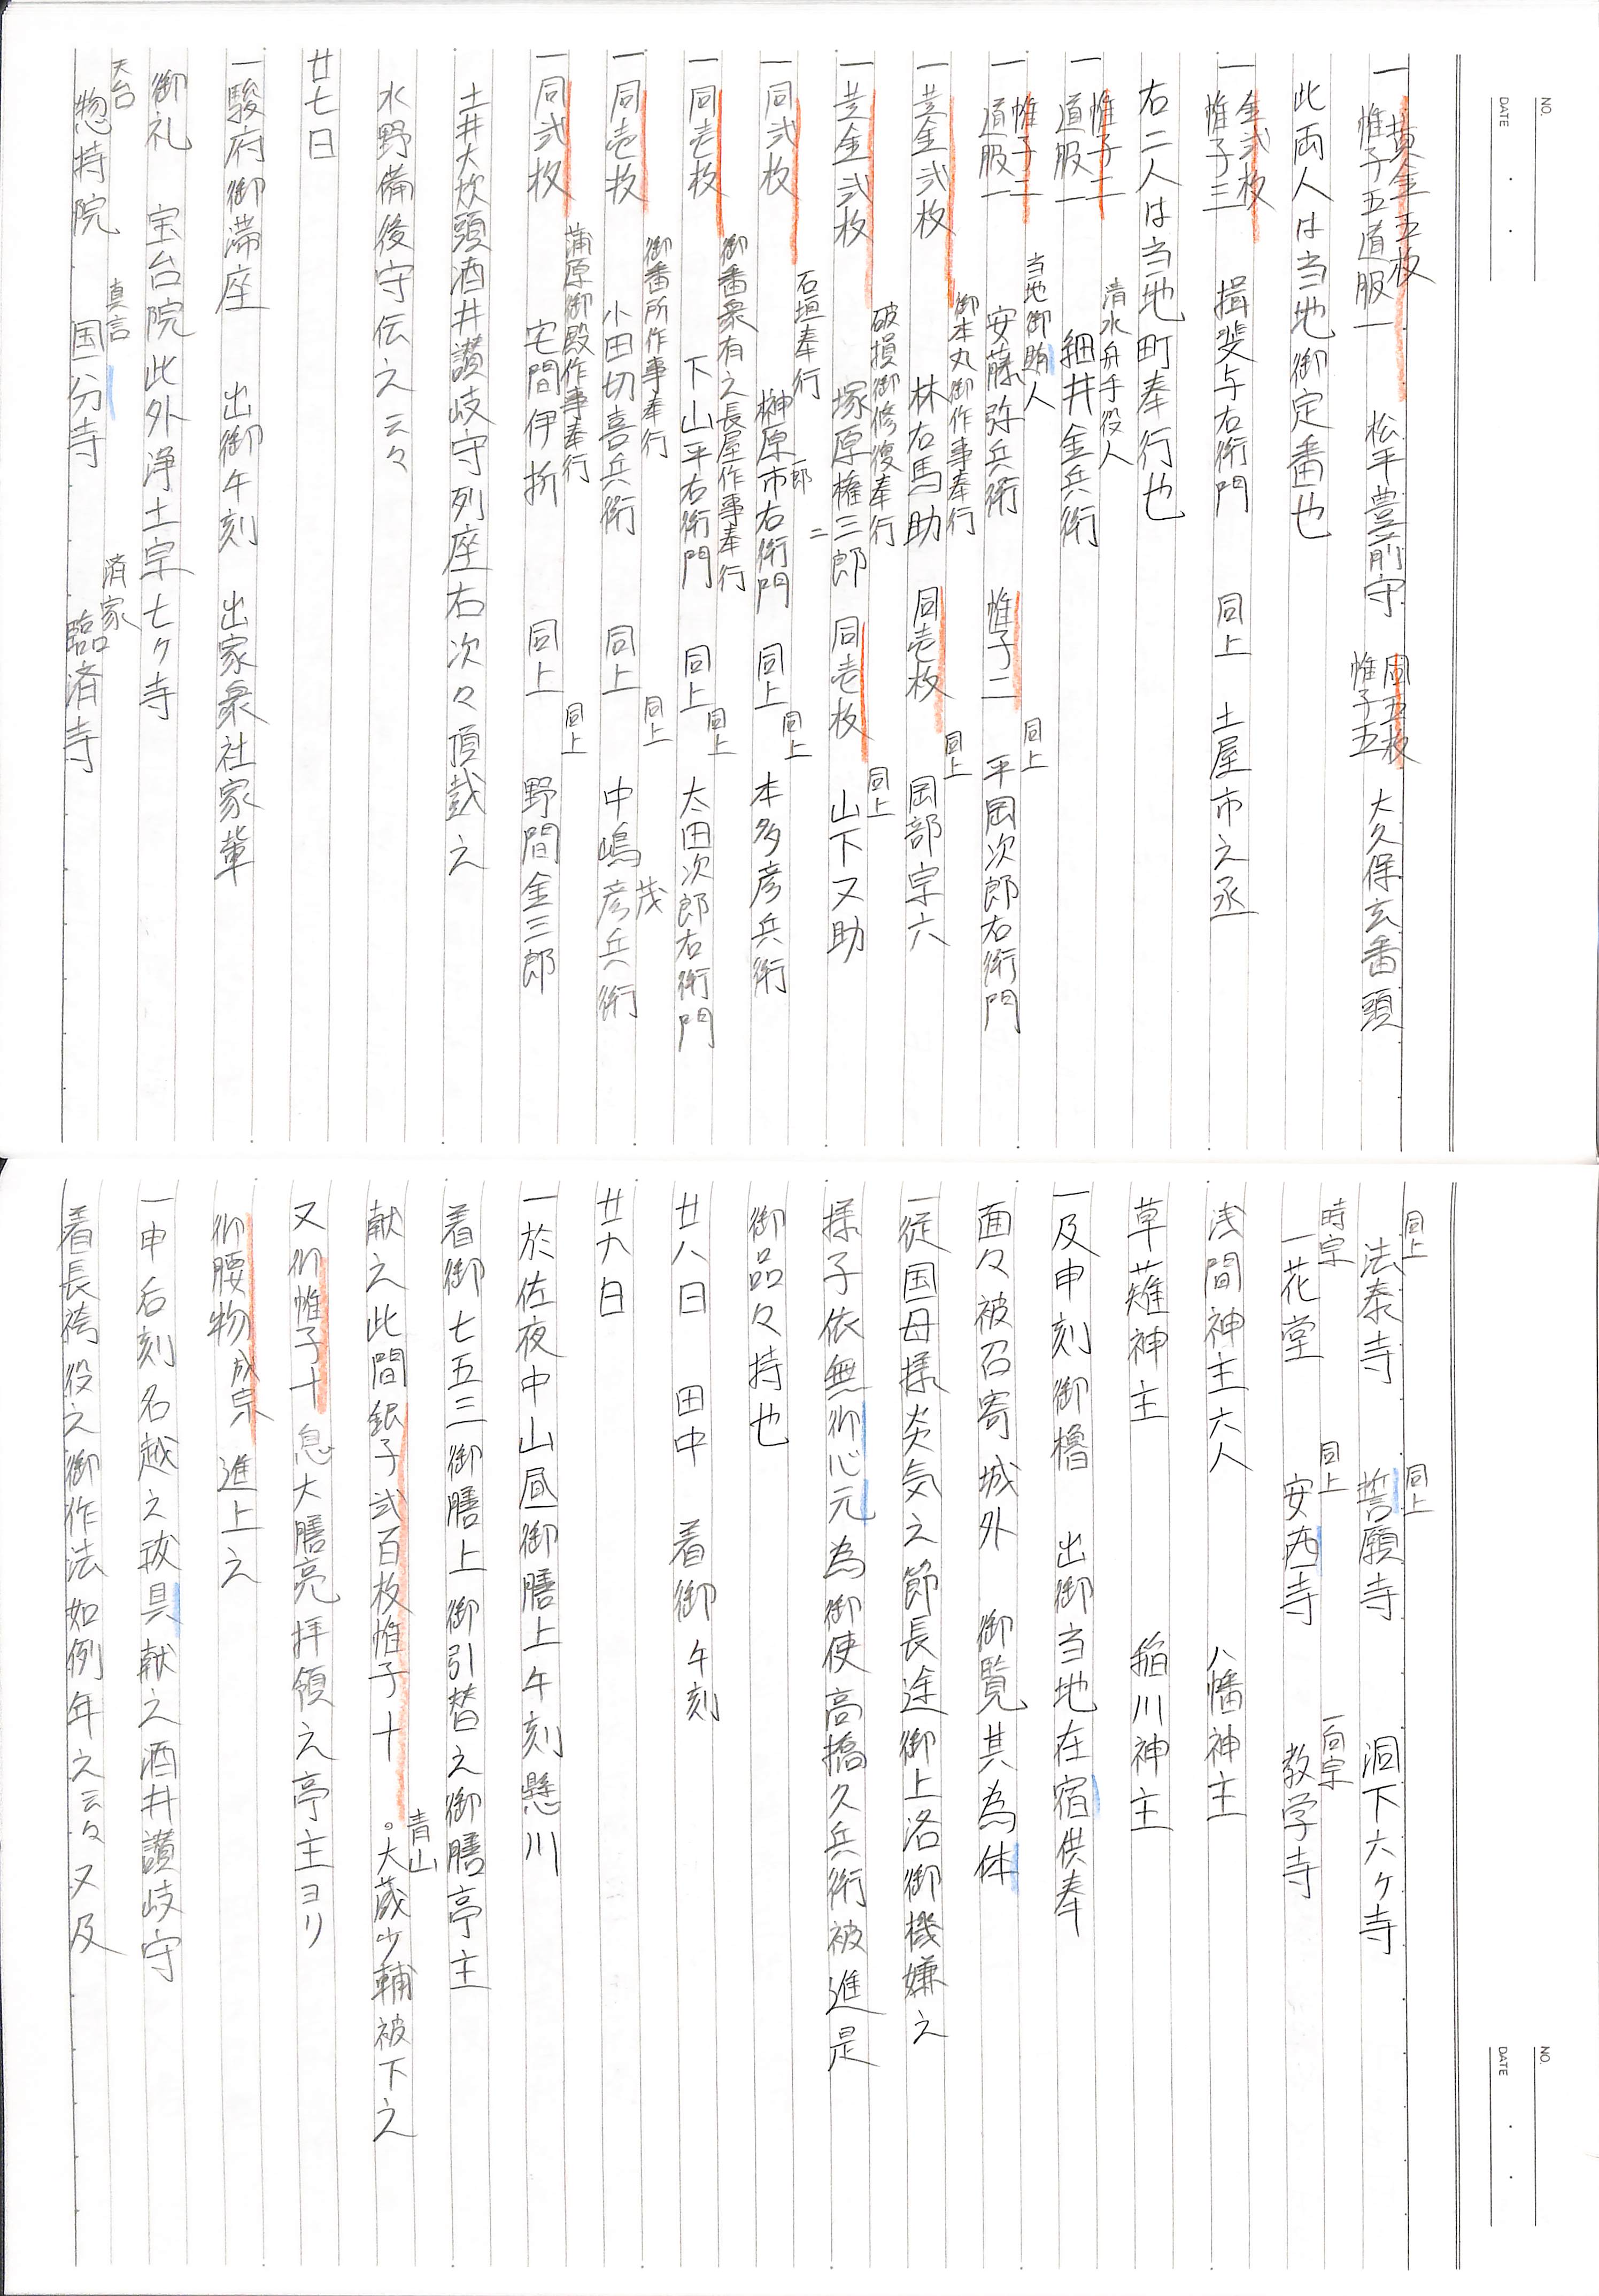 NO.
DATE
一 黄金五枚 帷子五道服一 松平豊前守 同五枚 帷子五 大久保玄番頭
此両人は当地御定番也
一 金弐枚 帷子三 揖斐与右衛門 同上 土屋市之丞
右二人は当地町奉行也
一 帷子二 道服一 清水舟手役人 細井金兵衛
一 帷子二 道服一 当地御賄人 安藤弥兵衛 帷子二 同上 平岡次郎右衛門
一 黄金弐枚 御本丸御作事奉行 林右馬助 同壱枚 同上 岡部宗六
一 黄金弐枚 破損御修復奉行 塚原権三郎 同壱枚 同上 山下又助
一 同弐枚 石垣奉行 榊原市右衛門 郎 二 同上 同上 本多彦兵衛
一 同壱枚 御番衆有之長屋作事奉行 下山平右衛門 同上 同上 太田次郎右衛門
一 同壱枚 御番所作事奉行 小田切喜兵衛 同上 同上 中嶋彦兵衛 茂
一 同弐枚 蒲原御殿作事奉行 宅間伊折 同上 同上 野間金三郎
土井大炊頭酒井讃岐守列座右次々頂戴之
水野備後守伝之云々
廿七日
一駿府御滞座 出御午刻 出家衆社家輩
御礼 宝台院此外浄土宗七ケ寺
天台 惣持院 真言 国分寺 済家 臨済寺
NO.
DATE
同上 法泰寺 同上 誓願寺 洞下六ケ寺
時宗 一花堂 同上 安西寺 一向宗 教学寺
浅間神主六人 八幡神主
草薙神主 稲川神主
一及申刻御櫓 出御当地在宿供奉
面々被召寄城外 御覧其為体
一従国母様炎気之節長途御上洛御機嫌之
様子依無御心元為御使高橋久兵衛被進是
御品々持也
廿八日 田中 着御 午刻
廿九日
一於佐夜中山昼御膳上午刻懸川
着御七五三御膳上御引替之御膳亭主
献之此間銀子弐百枚帷子十 。青山 大蔵少輔被下之
又御帷子十 息大膳亮拝領之亭主ヨリ
御腰物成宗 進上之
一申后刻名越之祓具献之酒井讃岐守
着長袴役之御作法如例年之云々又及